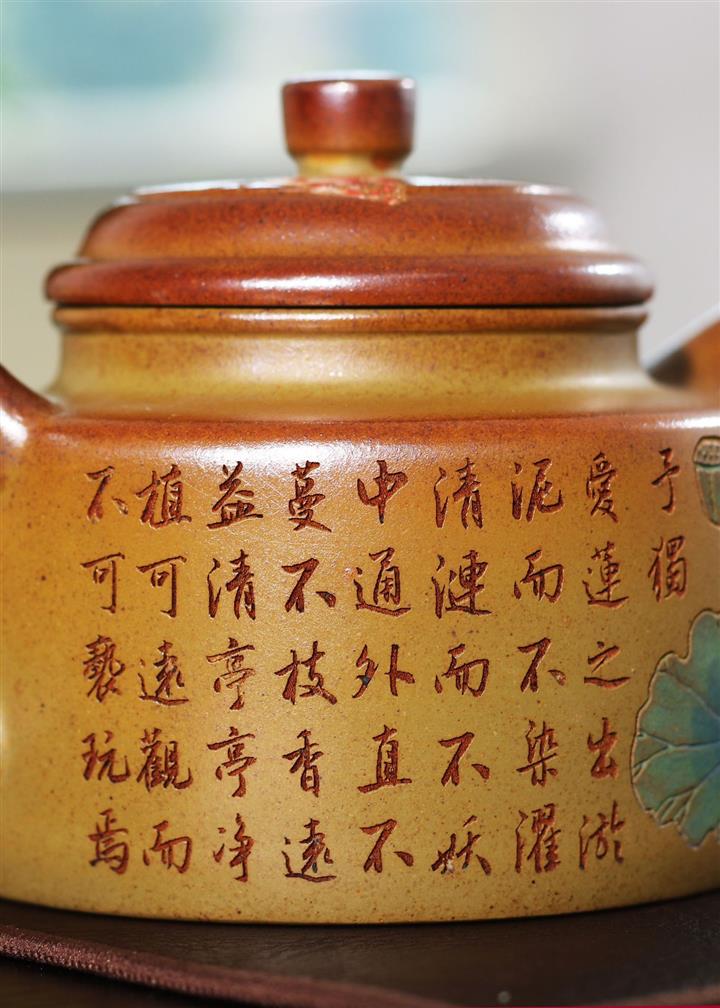 予獨
愛蓮之出淤
泥而不染濯
清漣而不妖
中通外直不
蔓不枝香遠
益清亭亭净
植可遠觀而
不可褻玩焉